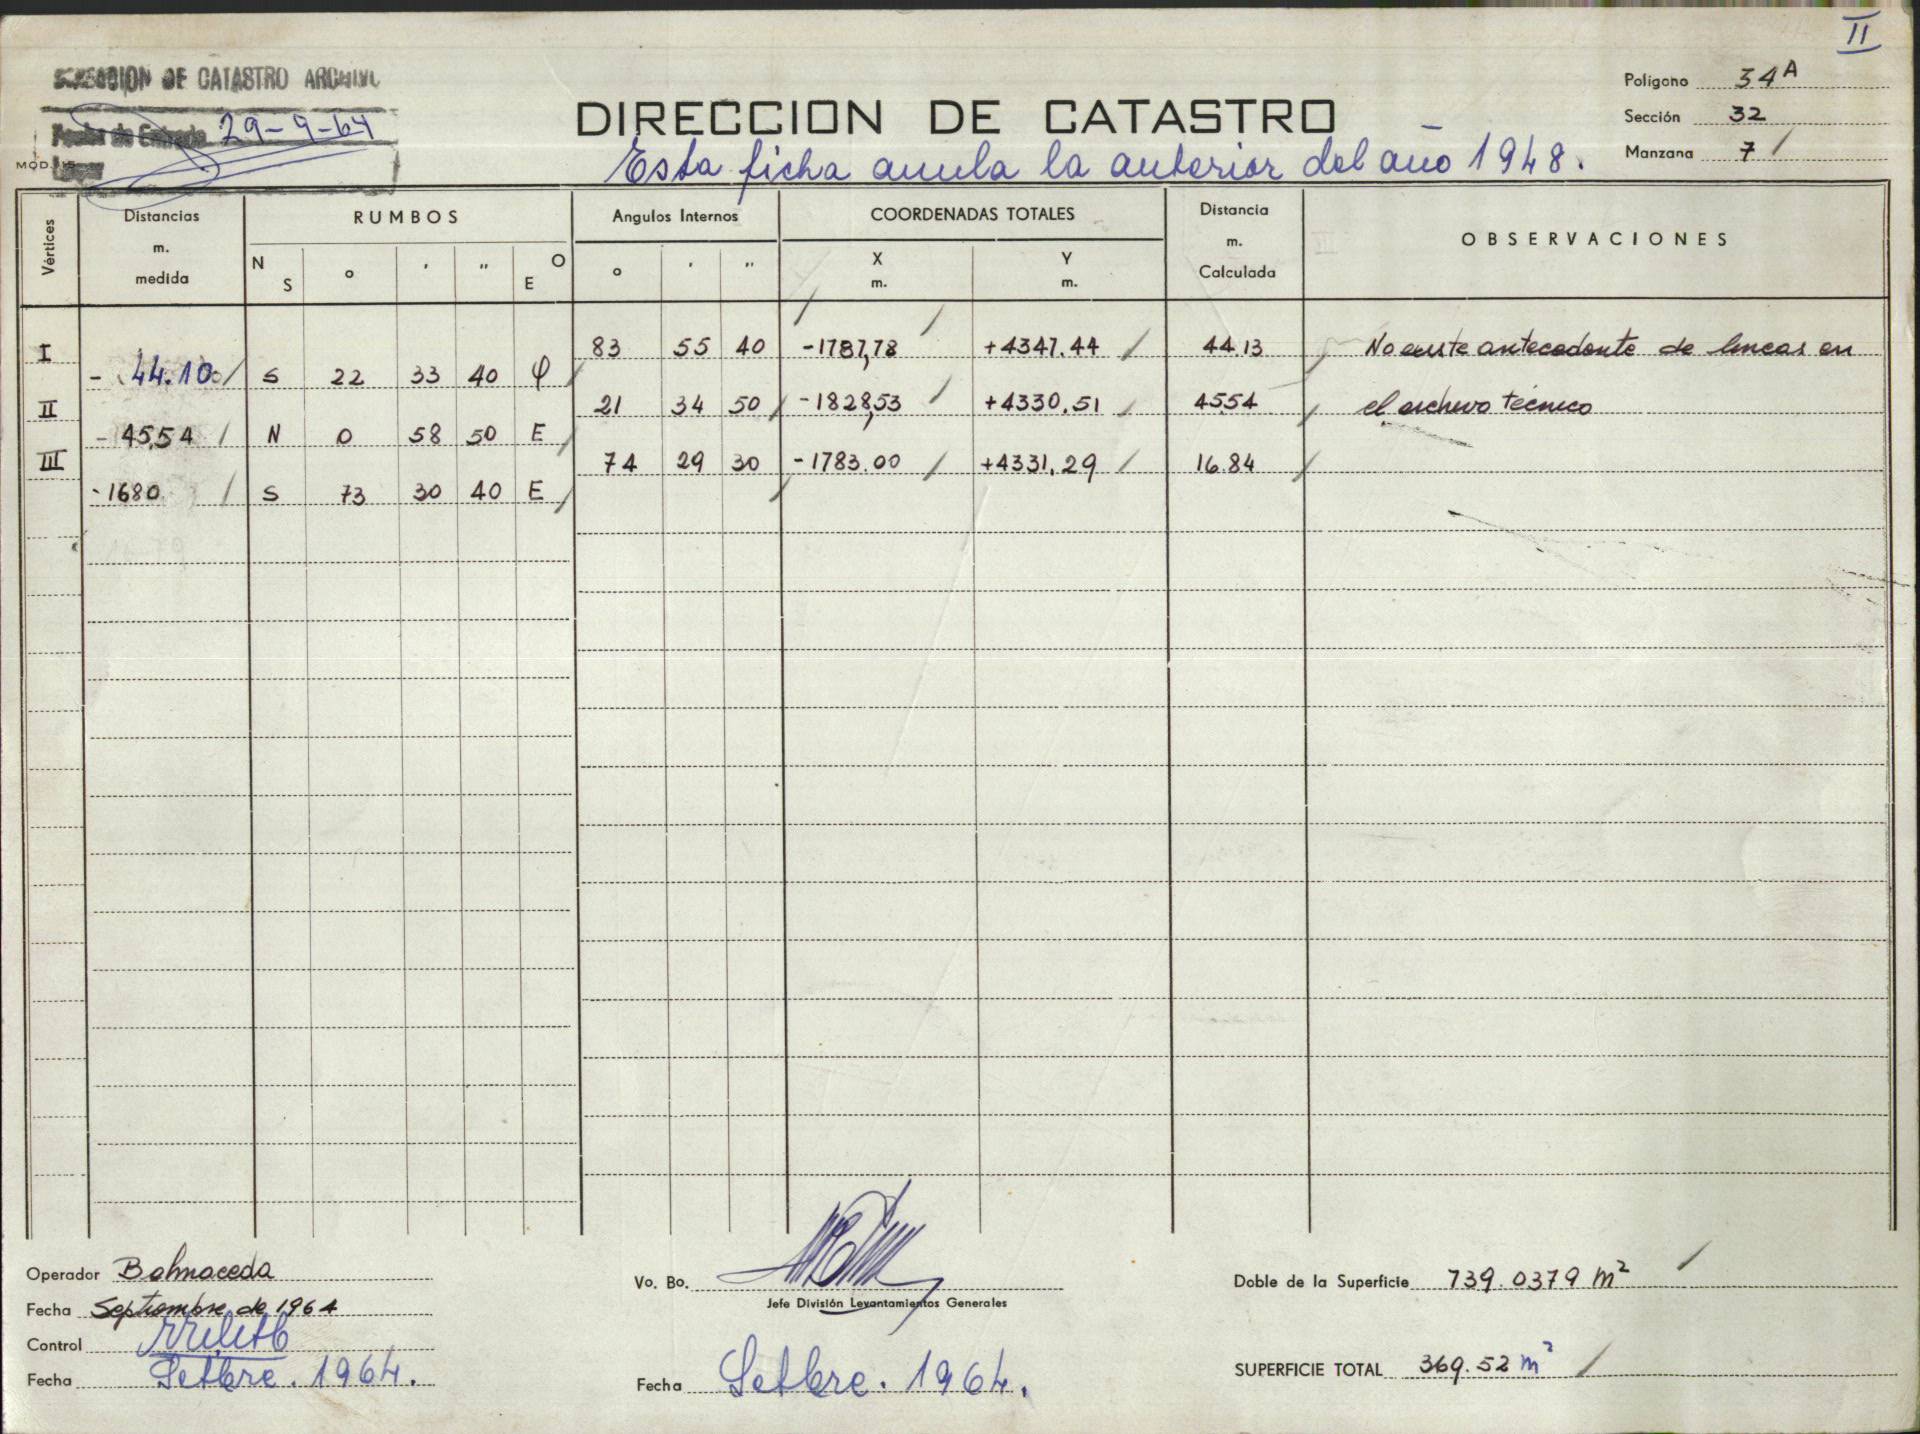 II
DE CATASTRO ARCHIVO
Fecha de Entrada 29-9-64
MOD.
DIRECCION DE CATASTRO
Esta ficha anula la anterior del año 1948.
Polígono 34A
Sección 32
Manzana 7
Vértices Distancias m. medida RUMBOS Angulos Internos COORDENADAS TOTALES Distancia m. Calculada OBSERVACIONES
N S ° ' " O E ° ' " X m. Y m.
I 83 55 40 -1787,78 +4347.44 44.13 No existe antecedente de lineas en
- 44.10 S 22 33 40 O
II 21 34 50 -1828,53 +4330.51 4554 el archivo técnico
- 45.54 N 0 58 50 E
III 74 29 30 -1783.00 +4331.29 16.84
-1680 S 73 30 40 E
Operador Balmaceda
Fecha Septiembre de 1964
Control
Fecha Setbre. 1964.
Vo. Bo.
Jefe División Levantamientos Generales
Fecha Setbre. 1964.
Doble de la Superficie 739.0379 m²
SUPERFICIE TOTAL 369.52 m²